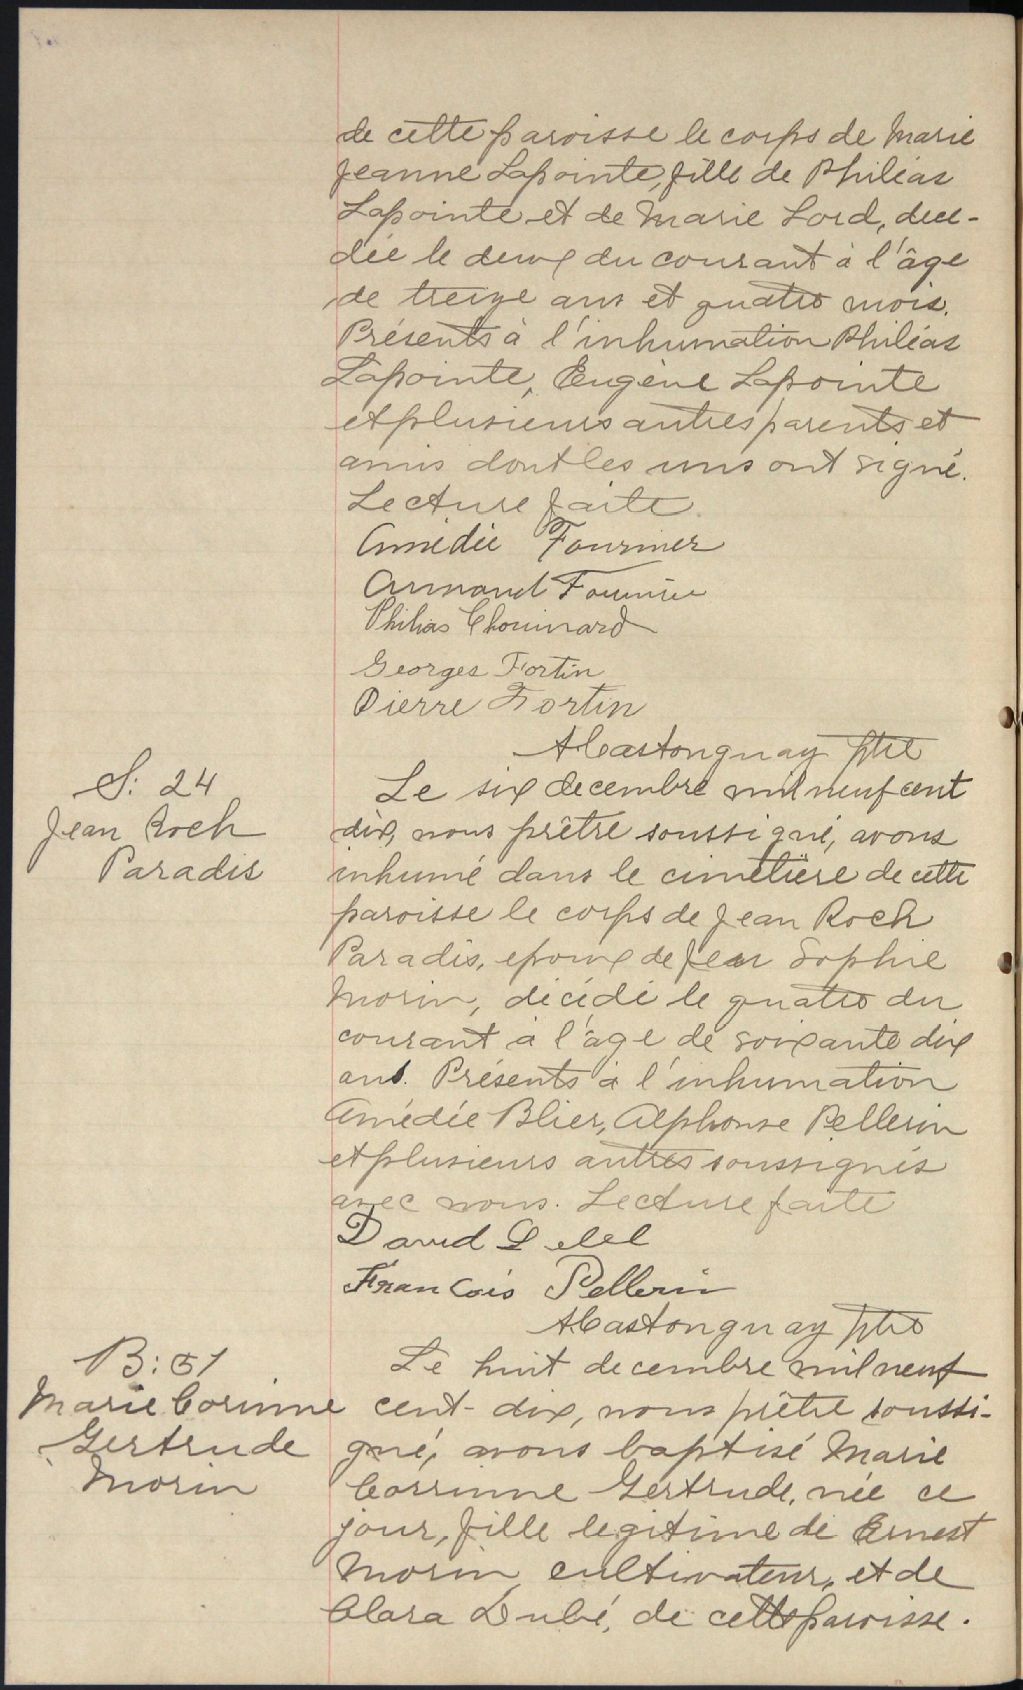 de cette paroisse le corps de Marie
Jeanne Lapointe, fille de Philéas
Lapointe et de Marie Lord, decé-
dée le deux du courant à l'âge
de treize ans et quatre mois.
Présents à l'inhumation Philéas
Lapointe, Eugène Lapointe
et plusieurs autres parents et
amis dont les uns ont signé.
Lecture faite.
Amédée Fournier
Armand Fournier
Philias Chouinard
Georges Fortin
Pierre Fortin
A Castonguay ptre
S: 24
Jean Roch
Paradis
Le six decembre mil neuf cent
dix, nous prêtre soussigné, avons
inhumé dans le cimetière de cette
paroisse le corps de Jean Roch
Paradis, epoux de feu Sophie
Morin, décédé le quatre du
courant à l'âge de soixante dix
ans. Présents à l'inhumation
Amédée Blier, Alphonse Pellerin
et plusieurs autres soussignés
avec nous. Lecture faite
David Lebel
François Pellerin
A Castonguay ptre
B: 51
Marie Corinne
Gertrude
Morin
Le huit decembre mil neuf
cent-dix, nous prêtre soussi-
gné, avons baptisé Marie
Corrinne Gertrude, née ce
jour, fille legitime de Ernest
Morin, cultivateur, et de
Clara Dubé, de cette paroisse.